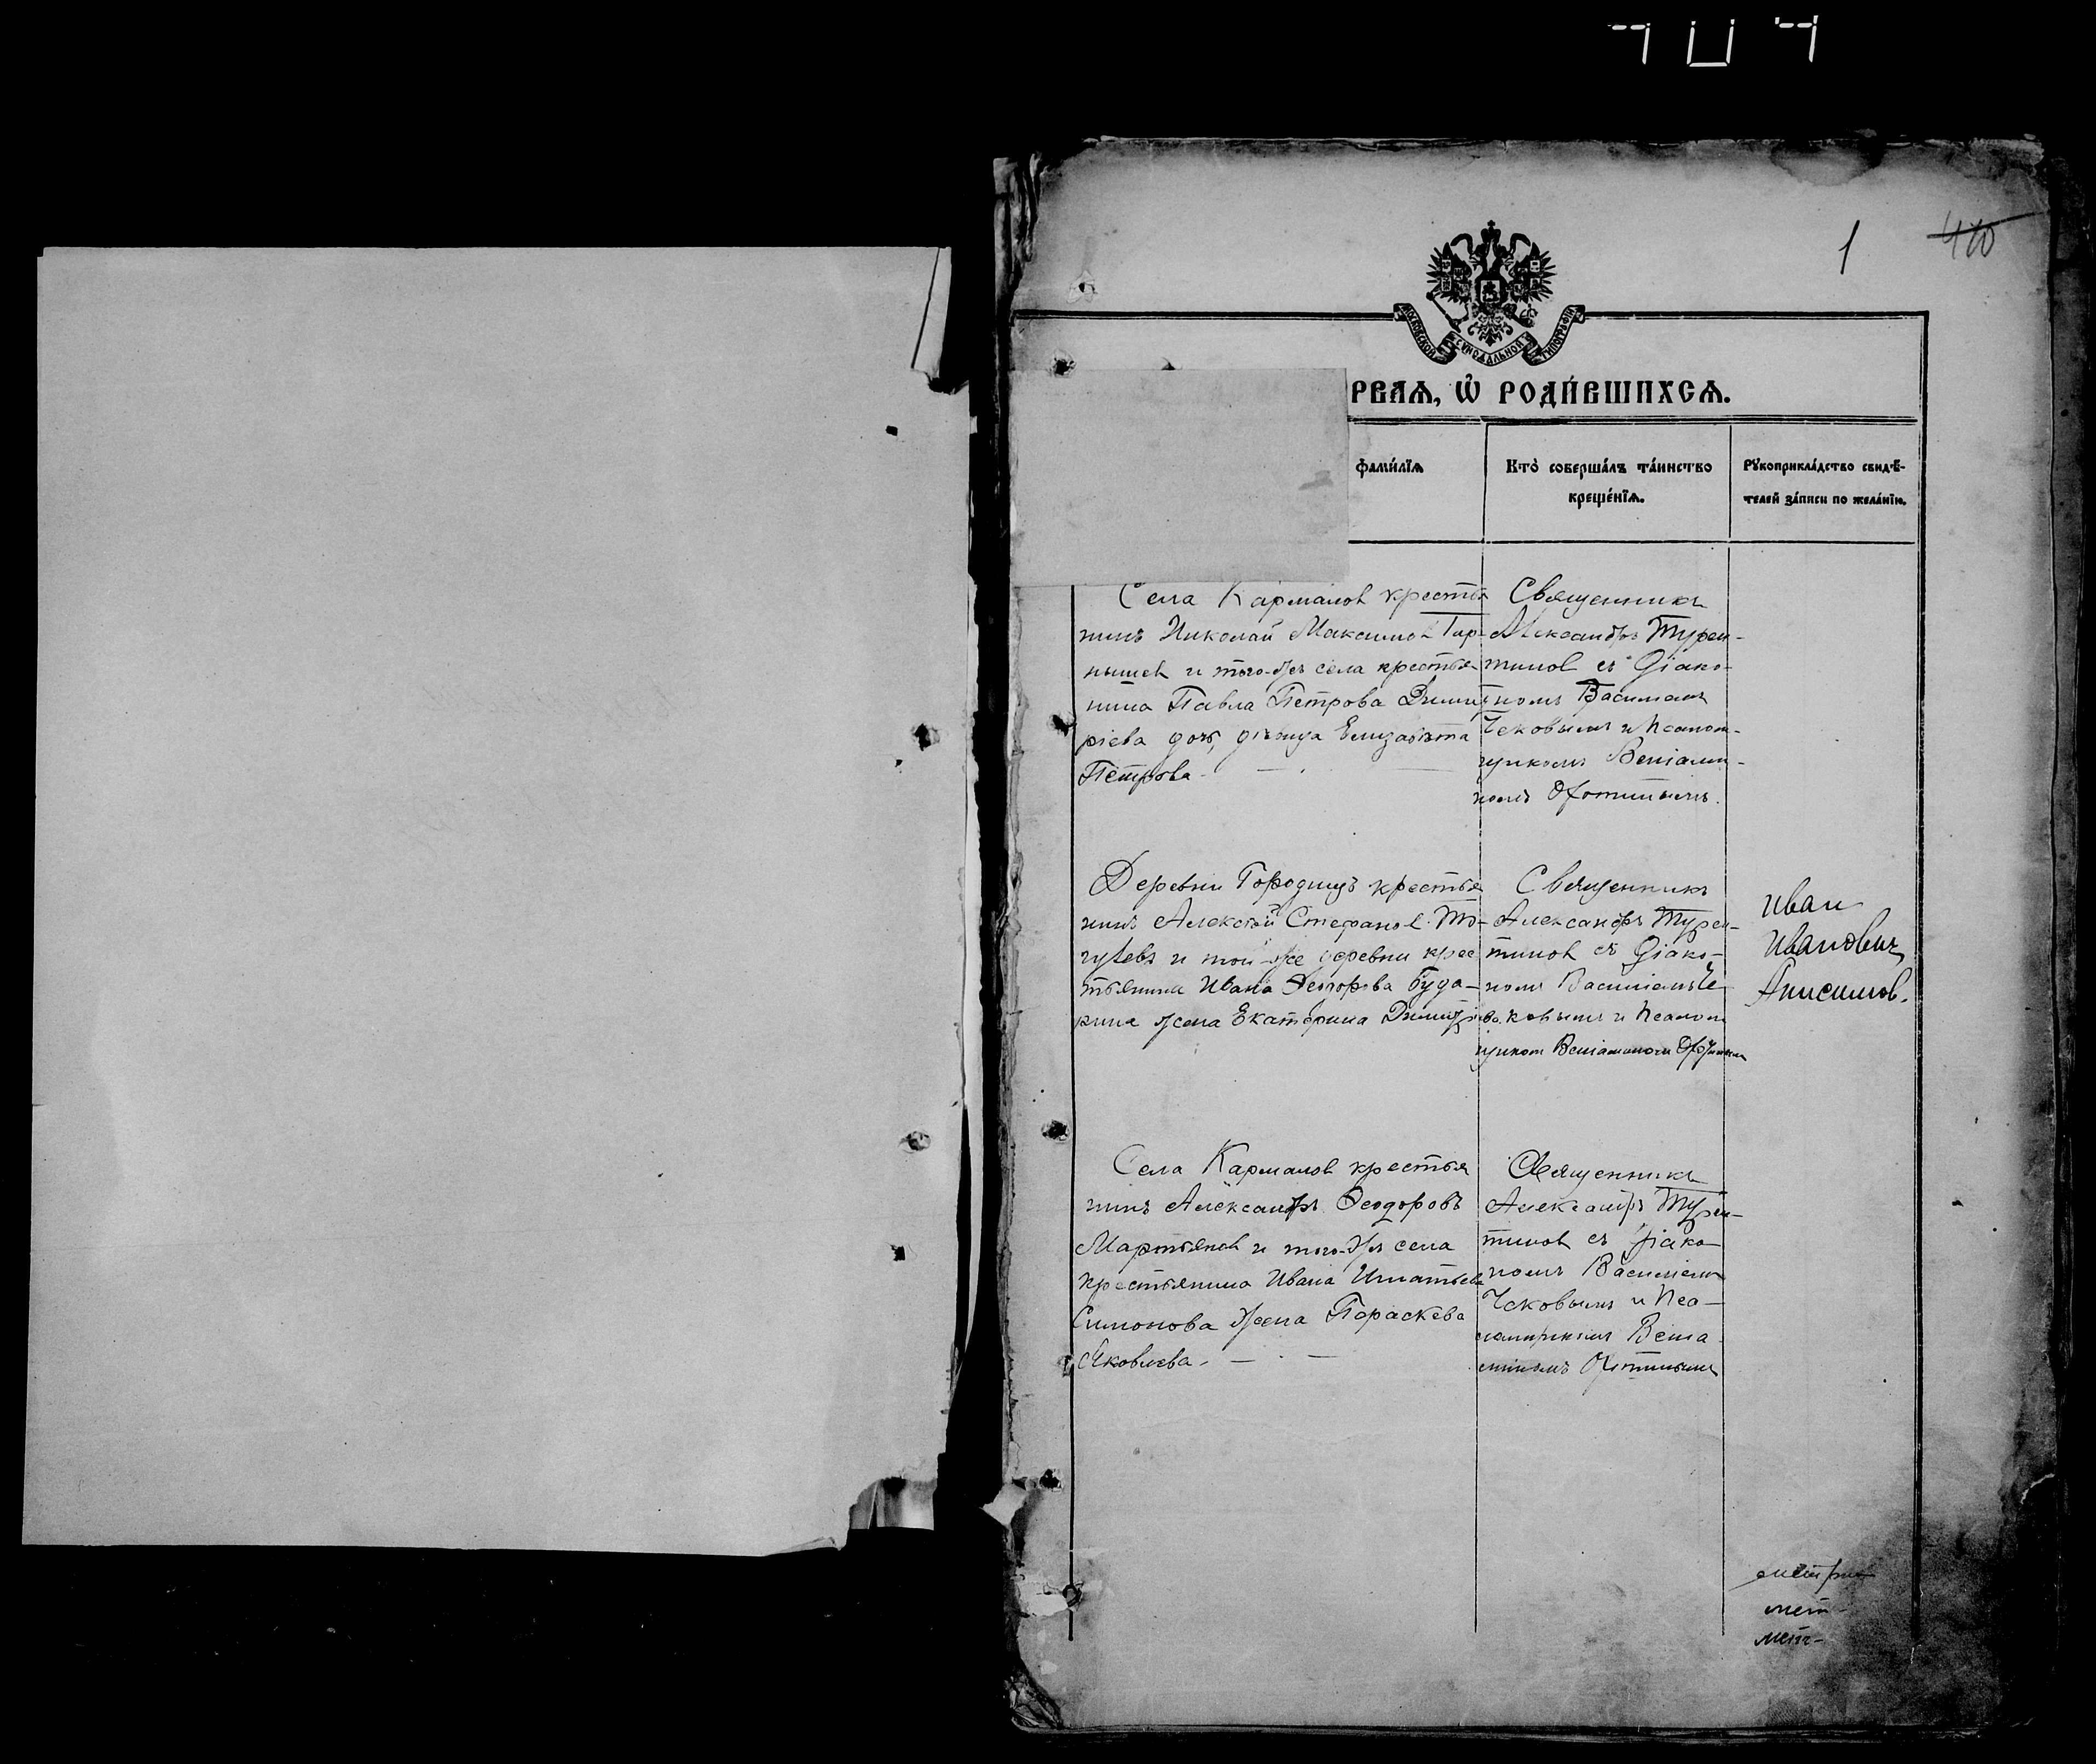 1 410
МОСКОВСКОЙ СѴНОДАЛЬНОЙ ТИПОГРАФІИ
РВАѦ, Ѡ҆ РОДИ́ВШИХСѦ.
фами́лїѧ
Кто̀ соверша́лъ та́инство
креще́нїѧ.
Рꙋкоприкла́дство свидѣ́-
телей за́писи по жела́нїю.
Села Кармалов крестья
нинъ Николай Максимов Гар-
нышев и того-же села крестья
нина Павла Петрова Дмит
ріева дочь, дѣвица Елизавета
Петрова.
Священникъ
Александръ Турен-
тинов съ Діако-
номъ Василіемъ
Чековымъ и Псалом-
щикомъ Веніами-
номъ
Деревни Городищъ крестья
нинъ Алексѣй Стефанов
и той-же деревни крес
тьянина Ивана Ѳеодорова Буда-
рина жена Екатерина Дмитріева
Священникъ
Александръ Турен-
тинов съ Діако-
номъ Василіемъ Че
ковымъ и Псалом
щиком Веніамином
Иван
Иванович
Анисимов.
Села Кармалов крестья
нинъ Александръ Ѳеодоровъ
Мартьянов и того-же села
крестьянина Ивана Игнатьева
Симонова жена Параскева
Яковлева.
Священникъ
Александръ Турен-
тинов съ Діако
номъ Василіемъ
Чековымъ и Пса-
ломщикомъ Веніа
миномъ
метрик
мет-
мет-